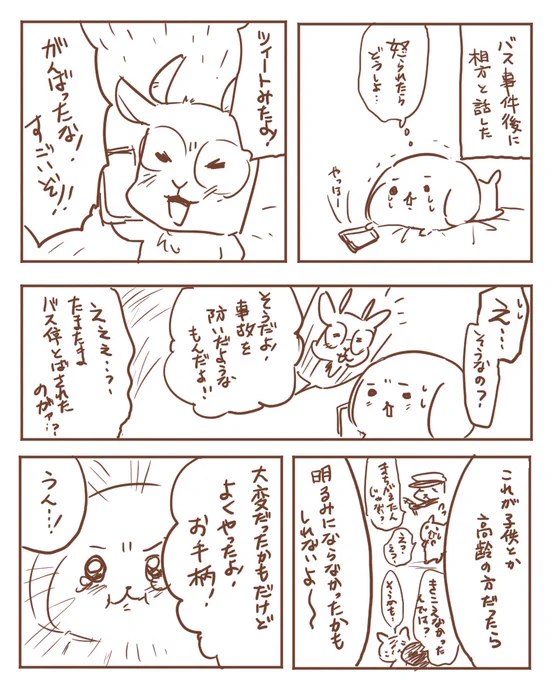 バス事件後に
相方と話した
怒られたら
どうしよ…
やっほー
ツィートみたよ!
がんばったな!
すごいぞ!!
え…
そうなの?
そうだよ!
事故を
防いだような
もんだよ!!
えええ…?
たまたま
バス停とばされた
のが…?
これが子供とか
高齢の方だったら
まちがえたん
じゃない?
え?
そう?
きこえなかった
んでは?
そうかも…
明るみにならなかったかも
しれないよ〜〜
大変だったかもだけど
よくやったよ!
お手柄!
うん…!